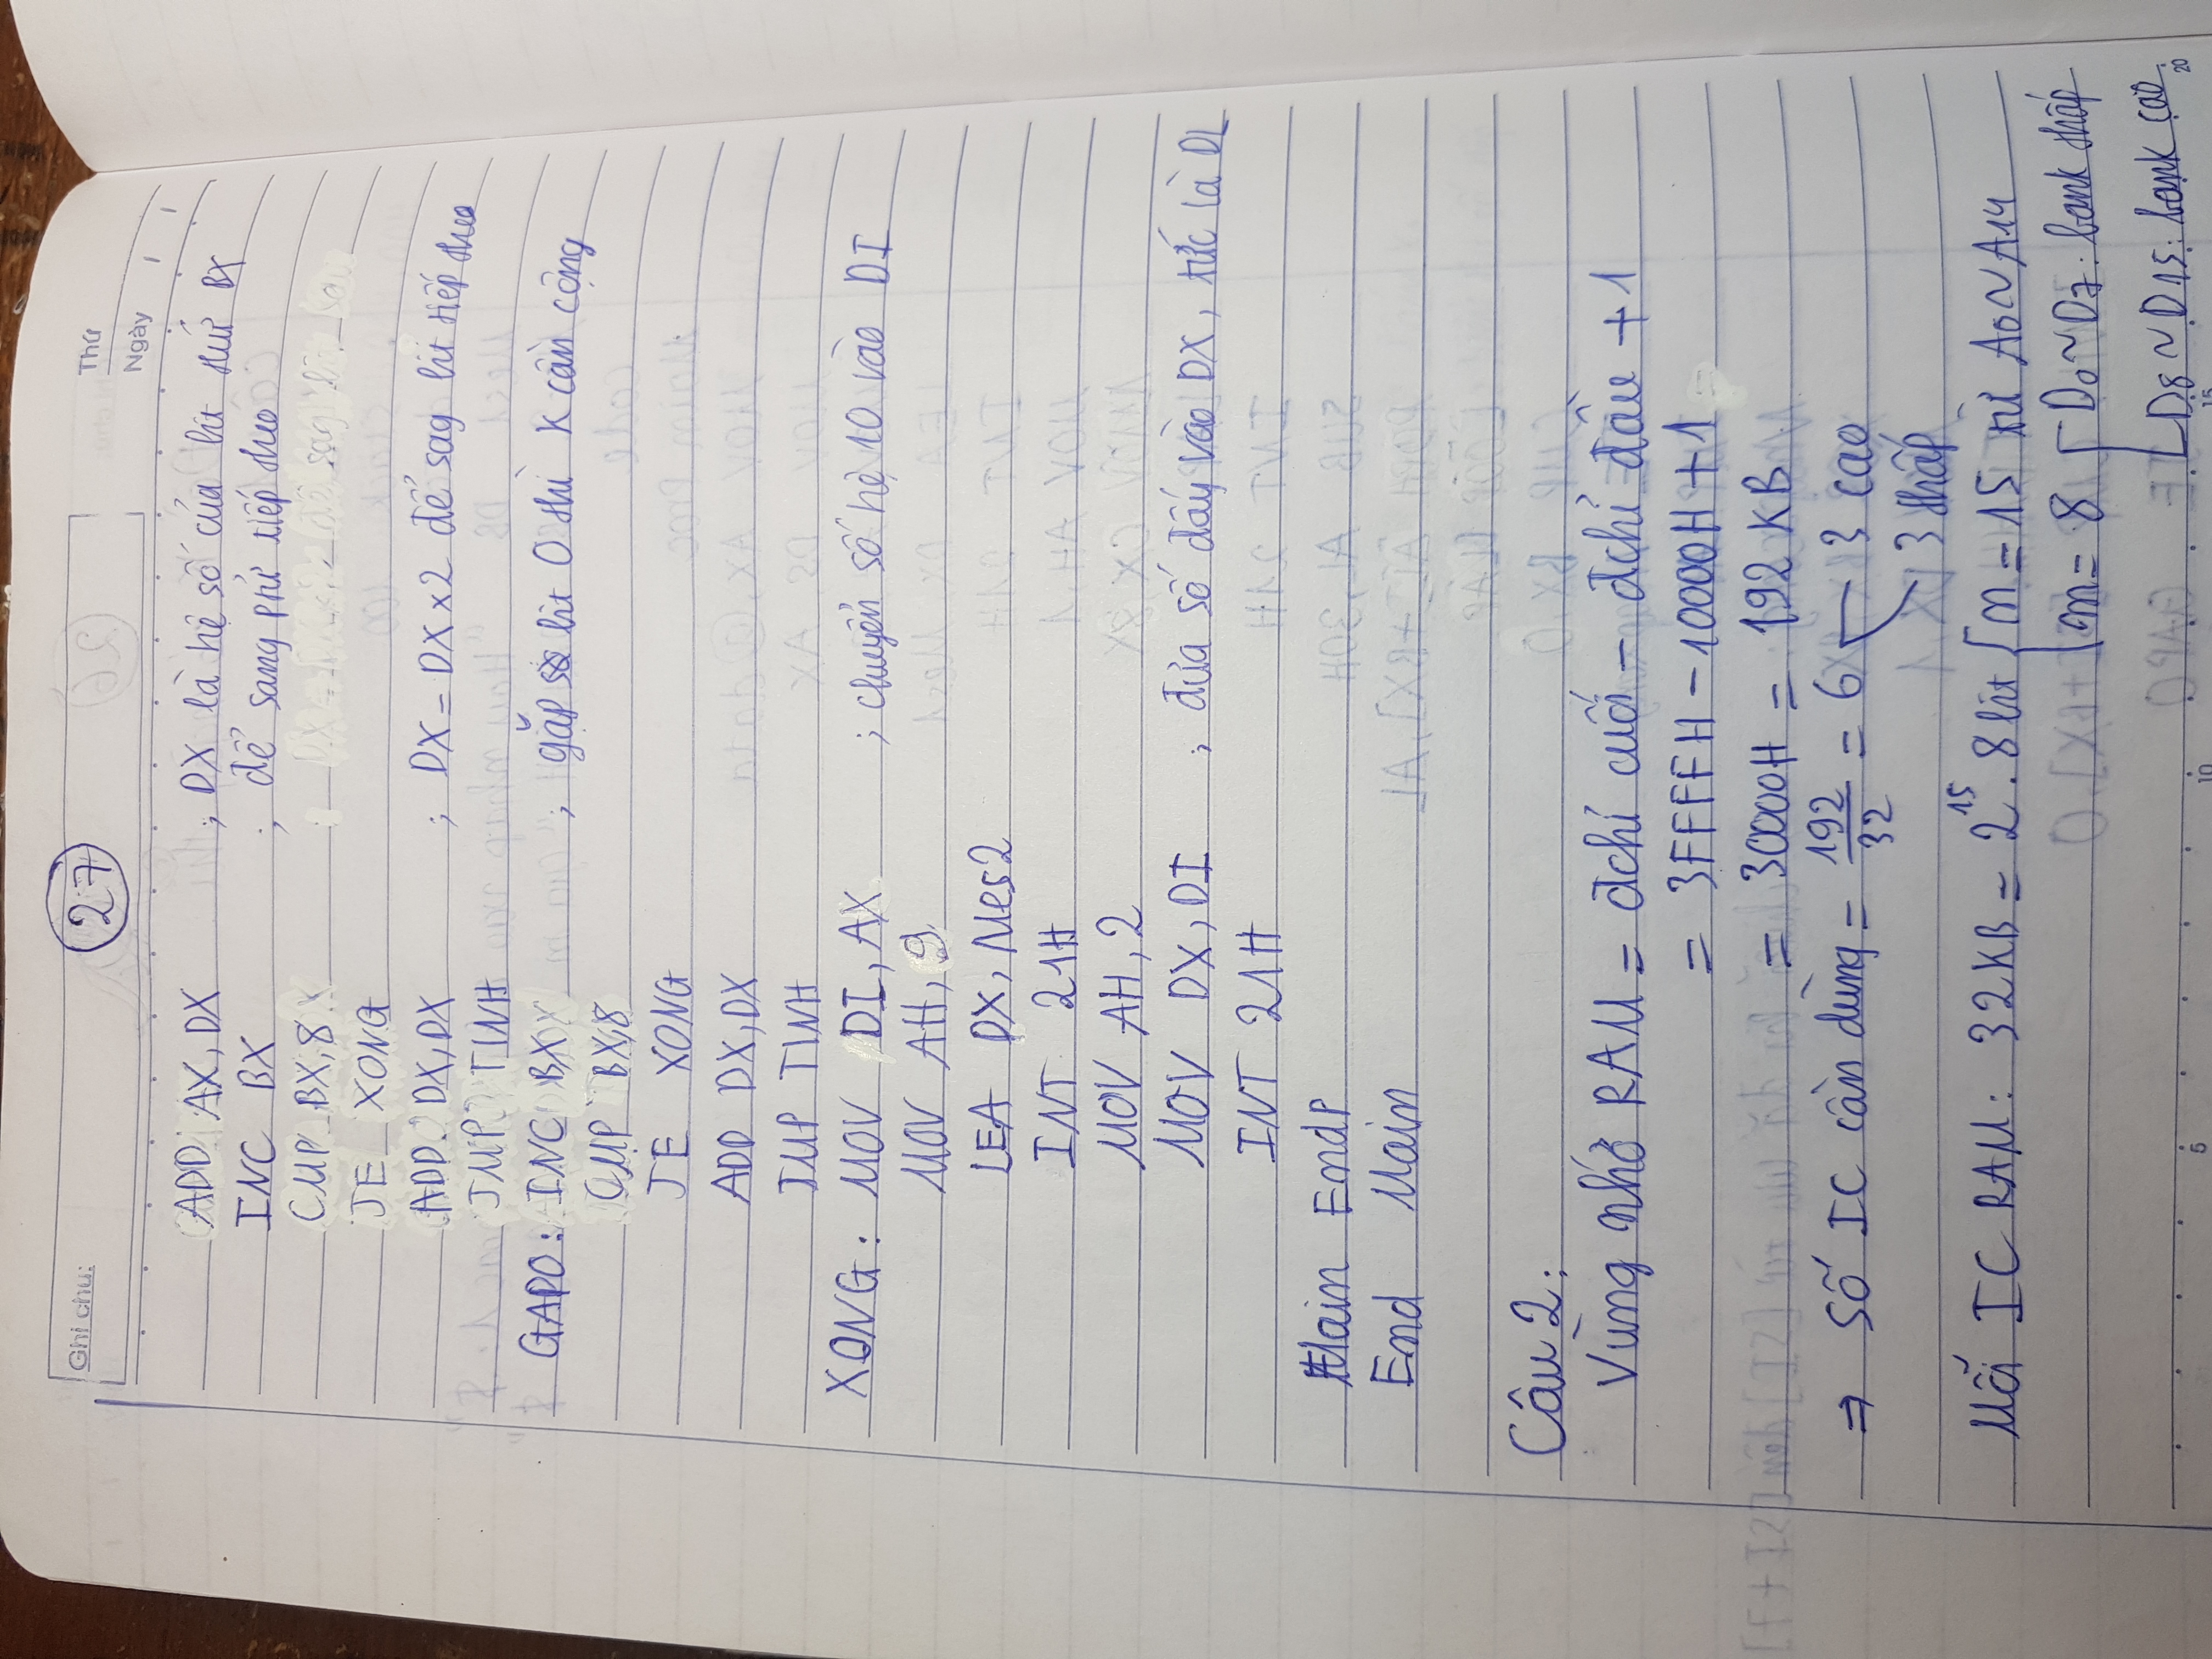 Ghi chú:
27
Thứ
Ngày
ADD AX, DX ; DX là hệ số của bit thứ BX
INC BX ; để sang ptử tiếp theo
CMP BX, 8
JE XONG
ADD DX, DX ; DX = DX x 2 để sag bit tiếp theo
JMP TINH
GAPO: INC BX ; gặp bit 0 thì k cần cộng
CMP BX, 8
JE XONG
ADD DX, DX
JMP TINH
XONG: MOV DI, AX ; chuyển số hệ 10 vào DI
MOV AH, 9
LEA DX, Mes2
INT 21H
MOV AH, 2
MOV DX, DI ; đưa số đấy vào DX, tức là DL
INT 21H
Main EndP
End Main
Câu 2:
Vùng nhớ RAM = đchỉ cuối - đchỉ đầu + 1
= 3FFFFH - 10000H + 1
= 30000H = 192 KB
⇒ Số IC cần dùng = 192/32 = 6 3 cao
3 thấp
Mỗi IC RAM: 32KB = 2^15 . 8 bit n = 15 từ A0 ~ A14
m = 8 D0 ~ D7: bank thấp
D8 ~ D15: bank cao
5 10 15 20